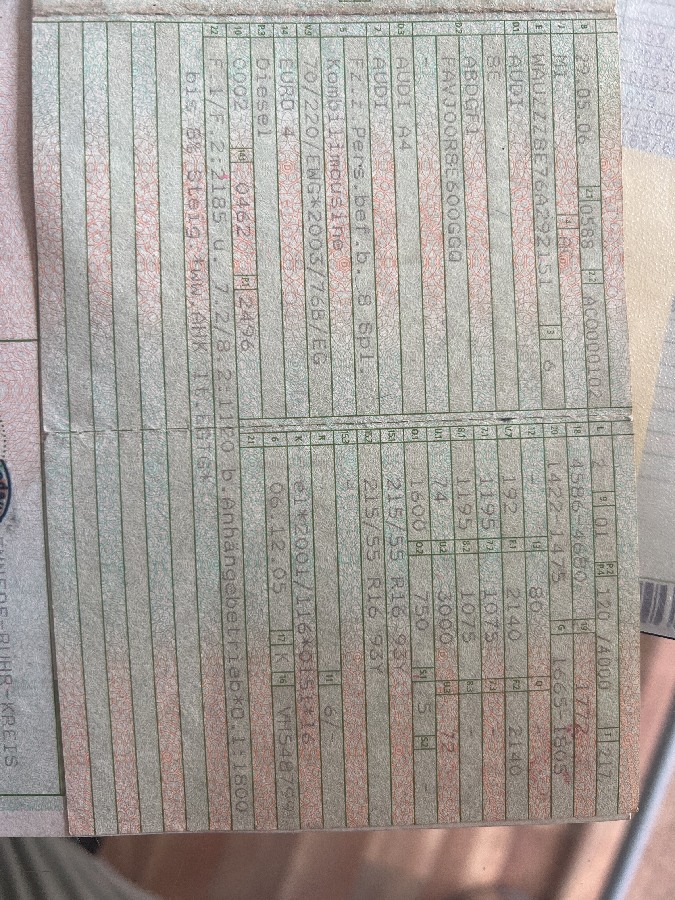 B 29.05.06 2.1 0588 2.2 AC0000102
J M1 4 AC
E WAUZZZ8E76A292151 3 6
D.1 AUDI
D.2 8E
ABDGF1
FAVJ00R8E600GGQ
D.3 -
AUDI A4
2 AUDI
5 Fz.z.Pers.bef.b. 8 Spl.
Kombilimousine
V.9 70/220/EWG*2003/76B/EG
14 EURO 4
P.3 Diesel
10 0002 14.1 0462 P.1 2496
22 F.1/F.2:2185 u. 7.2/8.2:1120 b.Anhängebetrieb*O.1:1800
bis 8% Steig.*ww.AHK lt.EGTG*
L 2 9 01 P.2 P.4 120 /4000 T 217
18 4586-4680 19 1772
20 1422-1475 G 1665 1805
12 - 13 80 Q -
V.7 192 F.1 2140 F.2 2140
7.1 1195 7.2 1075 7.3 -
8.1 1195 8.2 1075 8.3 -
U.1 74 U.2 3000 U.3 72
O.1 1600 O.2 750 S.1 5 S.2 -
15.1 215/55 R16 93Y
15.2 215/55 R16 93Y
15.3 -
R 11 6/-
K e1*2001/116*0151*16
6 06.12.05 17 K 16 VM548794
21
ENNEPE-RUHR-KREIS